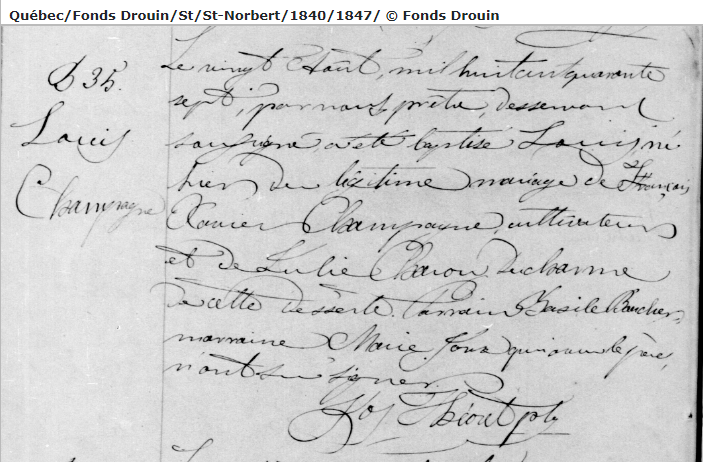 Québec/Fonds Drouin/St/St-Norbert/1840/1847/ © Fonds Drouin
B 35.
Louis
Champagne
Le vingt Août, mil huit cent quarante
sept, par nous, prêtre, desservant
soussigné a été baptisé Louis, né
hier du légitime mariage de François
Xavier Champagne, cultivateur
et de Julie Charon Ducharme
de cette desserte. Parrain Basile Boucher,
marraine Marie qui avec le père,
n'ont su signer.